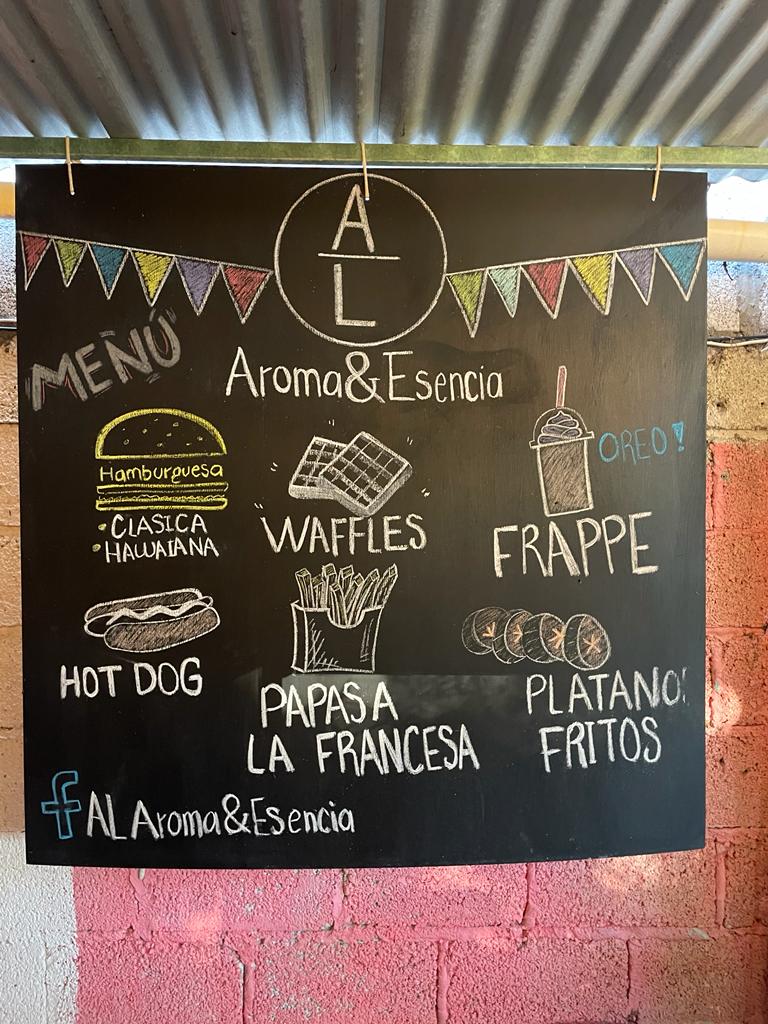 A
L
MENÚ
Aroma&Esencia
Hamburguesa
• CLASICA
• HAWAIANA
WAFFLES
OREO!
FRAPPE
HOT DOG
PAPAS A
LA FRANCESA
PLATANOS
FRITOS
f AL Aroma&Esencia